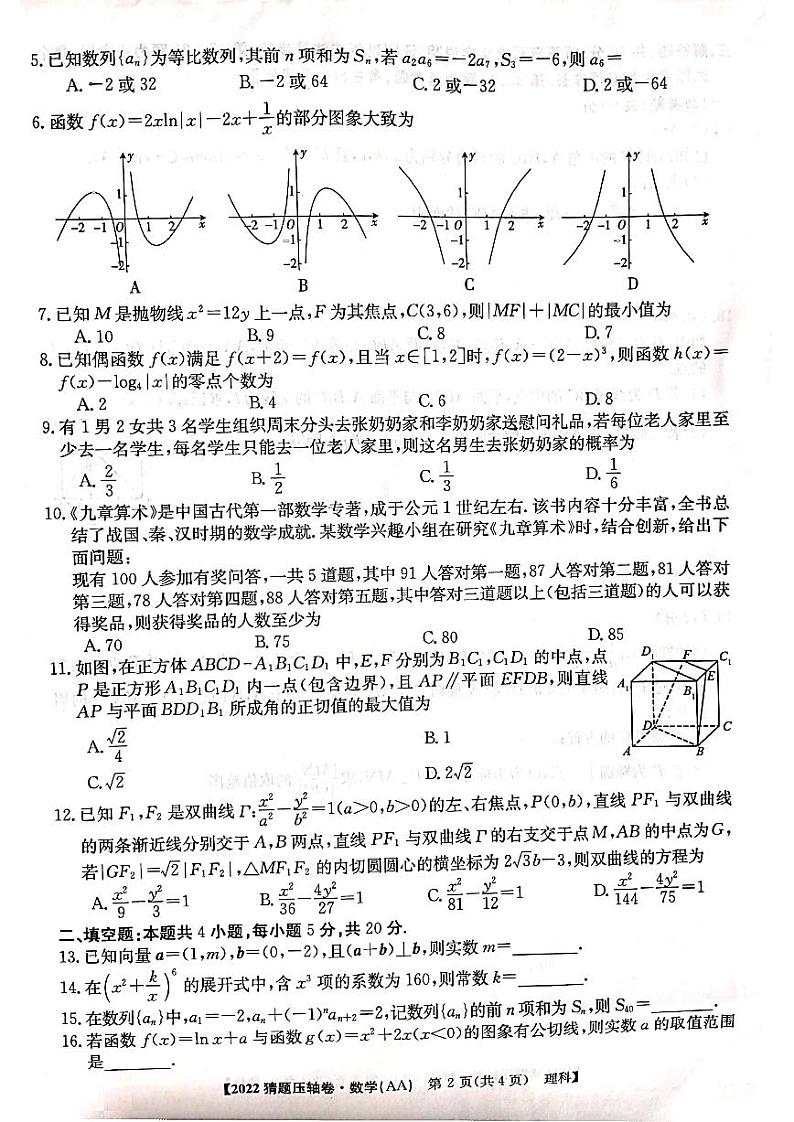 5.已知数列{aₙ}为等比数列,其前n项和为Sₙ,若a₂a₆=-2a₇,S₃=-6,则a₆=
A.-2或32 B.-2或64 C.2或-32 D.2或-64
6.函数f(x)=2xln|x|-2x+1/x的部分图象大致为
y y y y
1 1 1 1
-2 -1 O 1 2 x -2 -1 O 1 2 x -2 -1 O 1 2 x -2 -1 O 1 2 x
-1 -1 -1 -1
-2 -2 -2 -2
A B C D
7.已知M是抛物线x²=12y上一点,F为其焦点,C(3,6),则|MF|+|MC|的最小值为
A.10 B.9 C.8 D.7
8.已知偶函数f(x)满足f(x+2)=f(x),且当x∈[1,2]时,f(x)=(2-x)³,则函数h(x)=
f(x)-log₄|x|的零点个数为
A.2 B.4 C.6 D.8
9.有1男2女共3名学生组织周末分头去张奶奶家和李奶奶家送慰问礼品,若每位老人家里至
少去一名学生,每名学生只能去一位老人家里,则这名男生去张奶奶家的概率为
A.2/3 B.1/2 C.1/3 D.1/6
10.《九章算术》是中国古代第一部数学专著,成于公元1世纪左右.该书内容十分丰富,全书总
结了战国、秦、汉时期的数学成就.某数学兴趣小组在研究《九章算术》时,结合创新,给出下
面问题:
现有100人参加有奖问答,一共5道题,其中91人答对第一题,87人答对第二题,81人答对
第三题,78人答对第四题,88人答对第五题,其中答对三道题以上(包括三道题)的人可以获
得奖品,则获得奖品的人数至少为
A.70 B.75 C.80 D.85
11.如图,在正方体ABCD-A₁B₁C₁D₁中,E,F分别为B₁C₁,C₁D₁的中点,点
P是正方形A₁B₁C₁D₁内一点(包含边界),且AP∥平面EFDB,则直线
AP与平面BDD₁B₁所成角的正切值的最大值为
A.√2/4 B.1
C.√2 D.2√2
D₁ F C₁
A₁ B₁ E
D C
A B
12.已知F₁,F₂是双曲线Γ:x²/a²-y²/b²=1(a>0,b>0)的左、右焦点,P(0,b),直线PF₁与双曲线
的两条渐近线分别交于A,B两点,直线PF₁与双曲线Γ的右支交于点M,AB的中点为G,
若|GF₂|=√2|F₁F₂|,△MF₁F₂的内切圆圆心的横坐标为2√3b-3,则双曲线的方程为
A.x²/9-y²/3=1 B.x²/36-4y²/27=1 C.x²/81-y²/12=1 D.x²/144-4y²/75=1
二、填空题:本题共4小题,每小题5分,共20分.
13.已知向量a=(1,m),b=(0,-2),且(a+b)⊥b,则实数m=______.
14.在(x²+k/x)⁶的展开式中,含x³项的系数为160,则常数k=______.
15.在数列{aₙ}中,a₁=-2,aₙ+(-1)ⁿaₙ₊₂=2,记数列{aₙ}的前n项和为Sₙ,则S₄₀=______.
16.若函数f(x)=lnx+a与函数g(x)=x²+2x(x<0)的图象有公切线,则实数a的取值范围
是______.
【2022猜题压轴卷·数学(AA) 第2页(共4页) 理科】